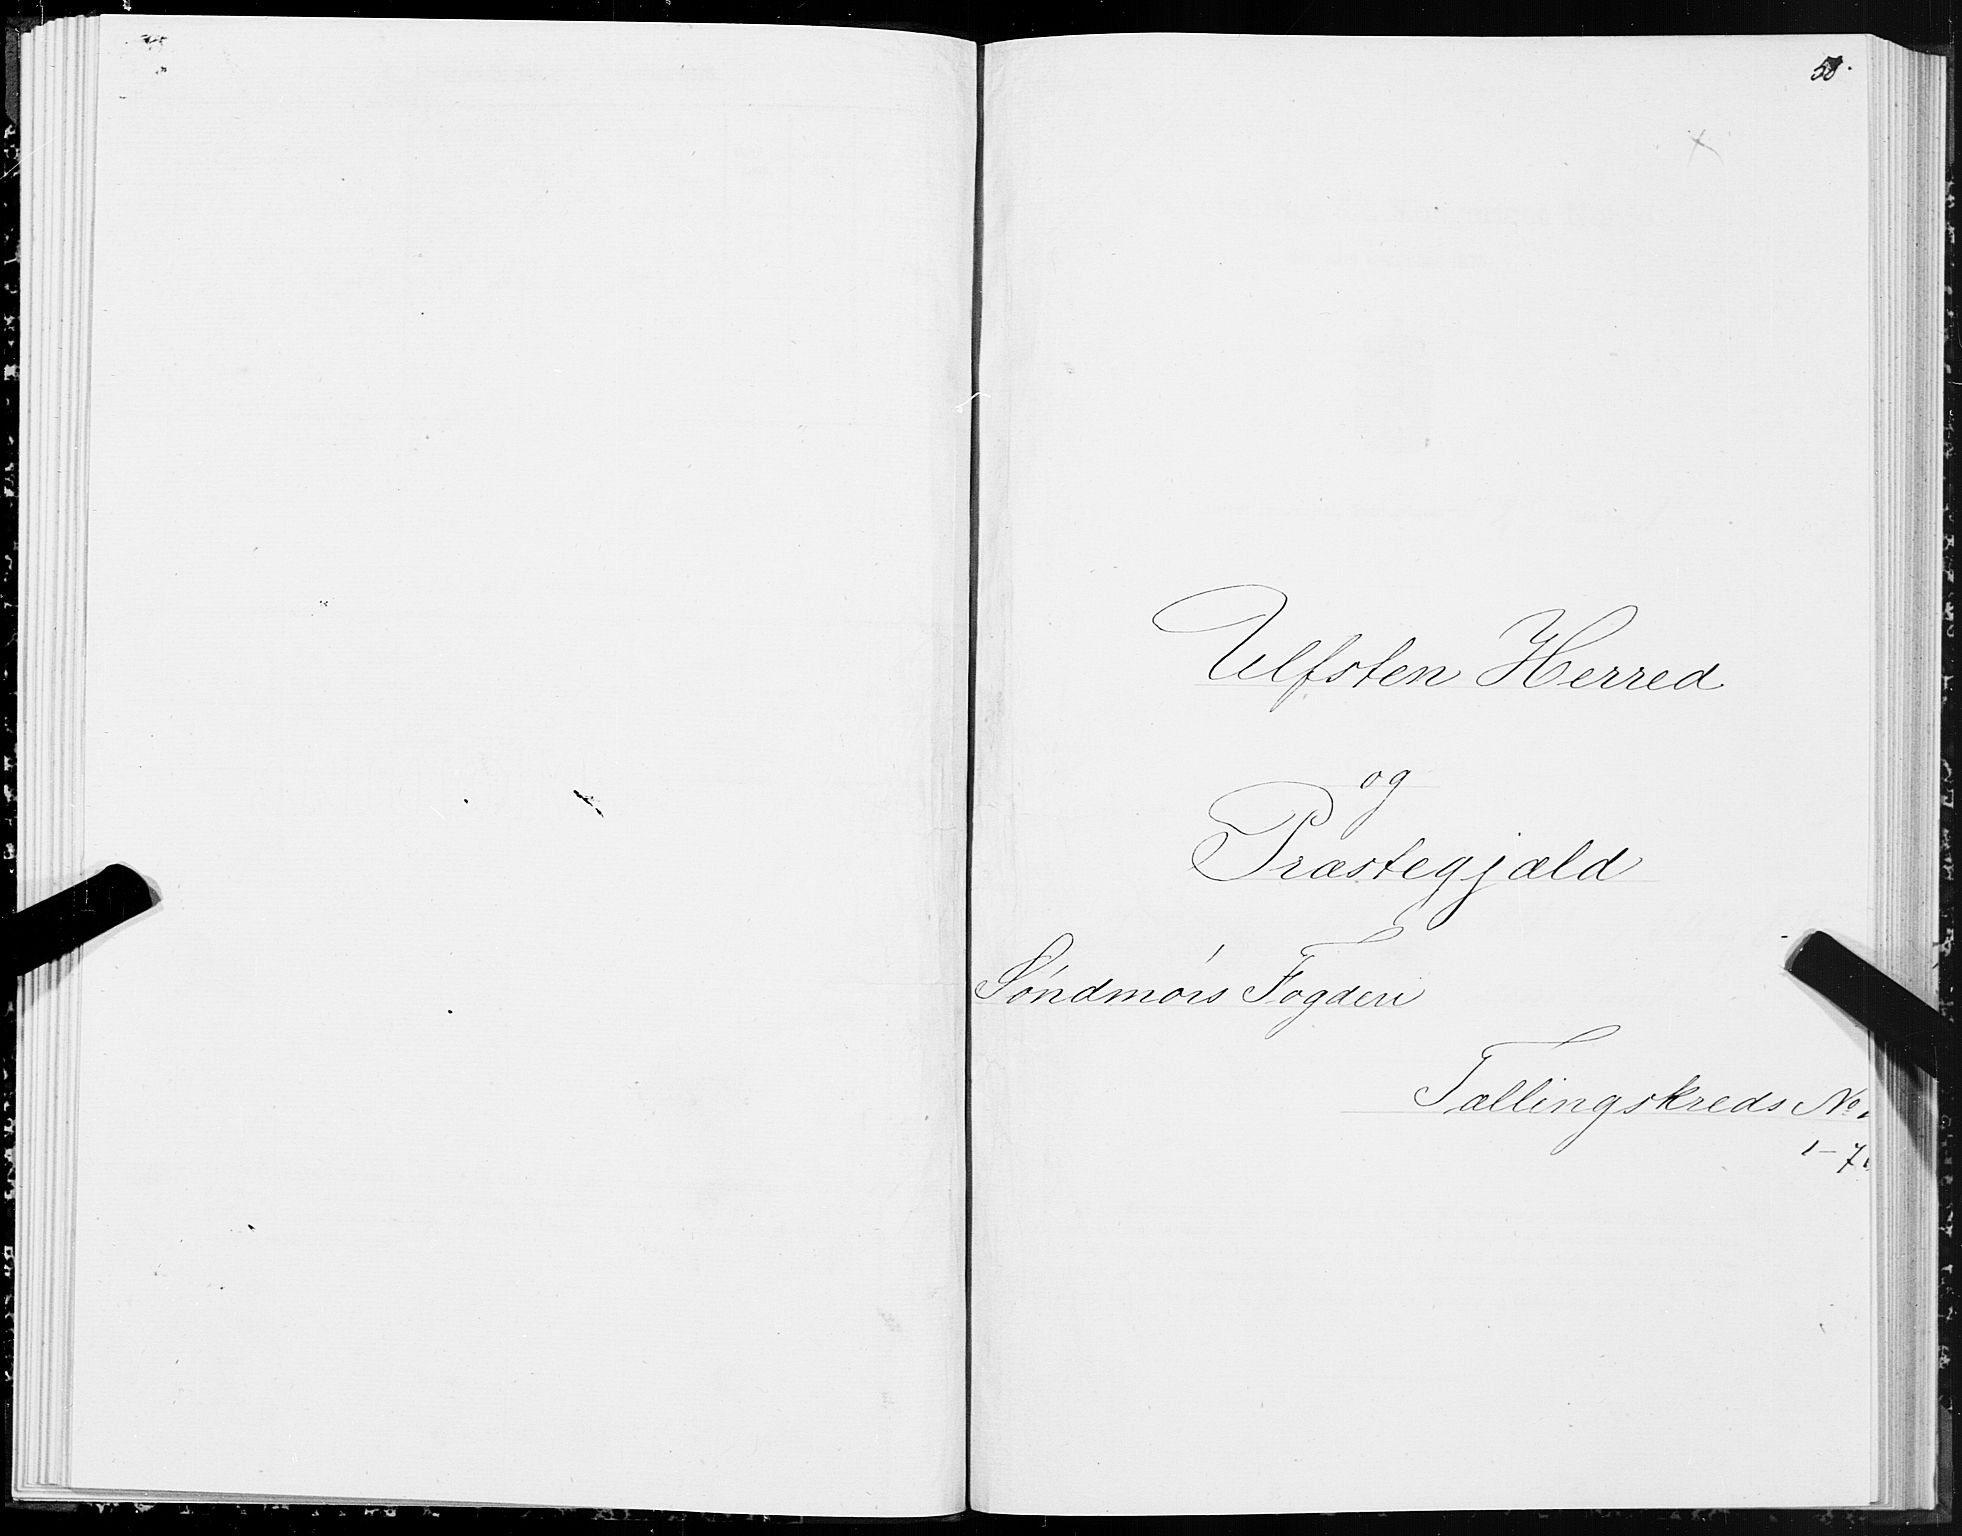 58.
Ulfsten Herred
og
Præstegjæld
Søndmørs Fogderi
Tællingskreds No.
1-7.